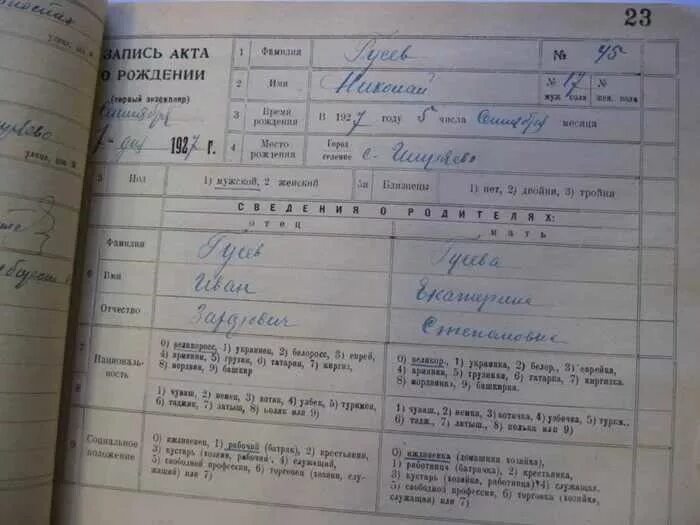 23
ЗАПИСЬ АКТА О РОЖДЕНИИ
(первый экземпляр)
192 7 г.
1 Фамилия Гусев № 45
2 Имя Николай № 17 муж. пола № жен. пола
3 Время рождения В 192 7 году 5 числа Сентября месяца
4 Место рождения Город селение с.
5 Пол 1) мужской, 2 женский 5а Близнецы 1) нет, 2) двойни, 3) тройни
СВЕДЕНИЯ О РОДИТЕЛЯХ:
отец мать
Фамилия Гусев Гусева
6 Имя Иван Екатерина
Отчество Степановна
7 Национальность
0) великоросс, 1) украинец, 2) белоросс, 3) еврей,
4) армянин, 5) грузин, 6) татарин, 7) киргиз,
8) мордвин, 9) башкир
0) великор., 1) украинка, 2) белор., 3) еврейка,
4) армянка, 5) грузинка, 6) татарка, 7) киргизка,
8) мордовка, 9) башкирка.
8
1) чуваш, 2) немец, 3) вотяк, 4) узбек, 5) туркмен,
6) таджик, 7) латыш, 8) поляк или 9)
1) чуваш., 2) немка, 3) вотячка, 4) узбечка, 5) туркм.,
6) тадж., 7) латыш., 8) полька или 9)
9 Социальное положение
0) иждивенец, 1) рабочий (батрак), 2) крестьянин,
3) кустарь (хозяин, рабочий), 4) служащий,
5) свободной профессии, 6) торговец (хозяин, слу-
жащий) или 7)
0) иждивенка (домашняя хозяйка),
1) работница (батрачка), 2) крестьянка,
3) кустарь (хозяйка, работница) 4) служащая,
5) свободной профессии, 6) торговка (хозяйка,
служащая) или 7)